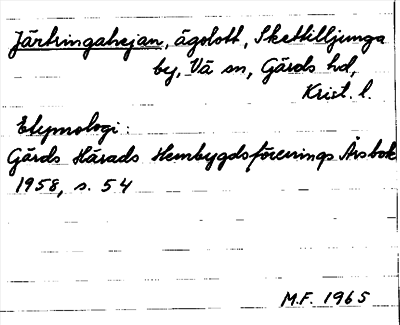 Järtringahejan, ägolott, Skettilljunga
by, Vä sn, Gärds hd,
Krist. l.
Etymologi:
Gärds Härads Hembygdsförenings Årsbok
1958, s. 54
M.F. 1965